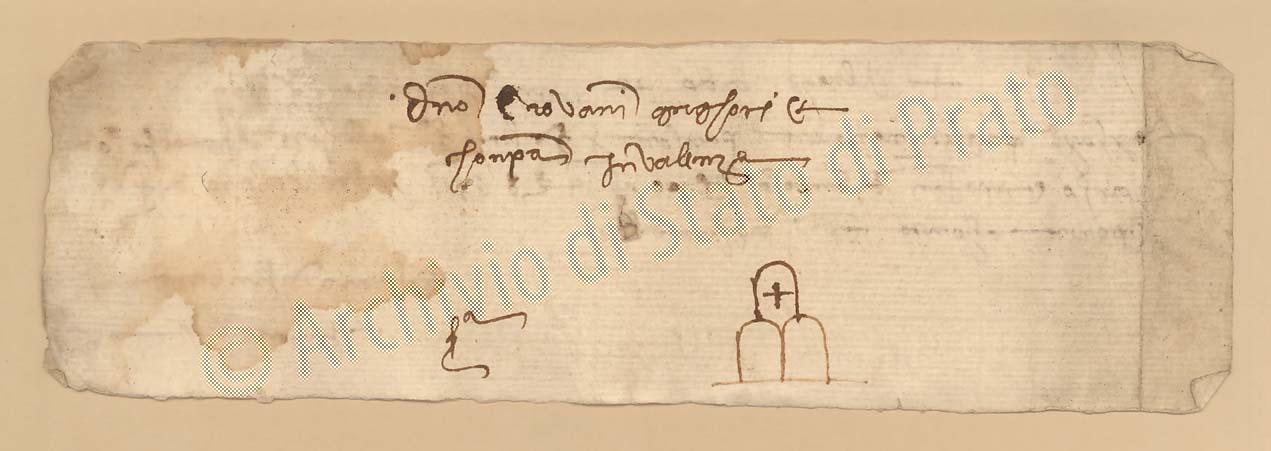 dno Giovani greghori &
chonpa in valenza
© Archivio di Stato di Prato